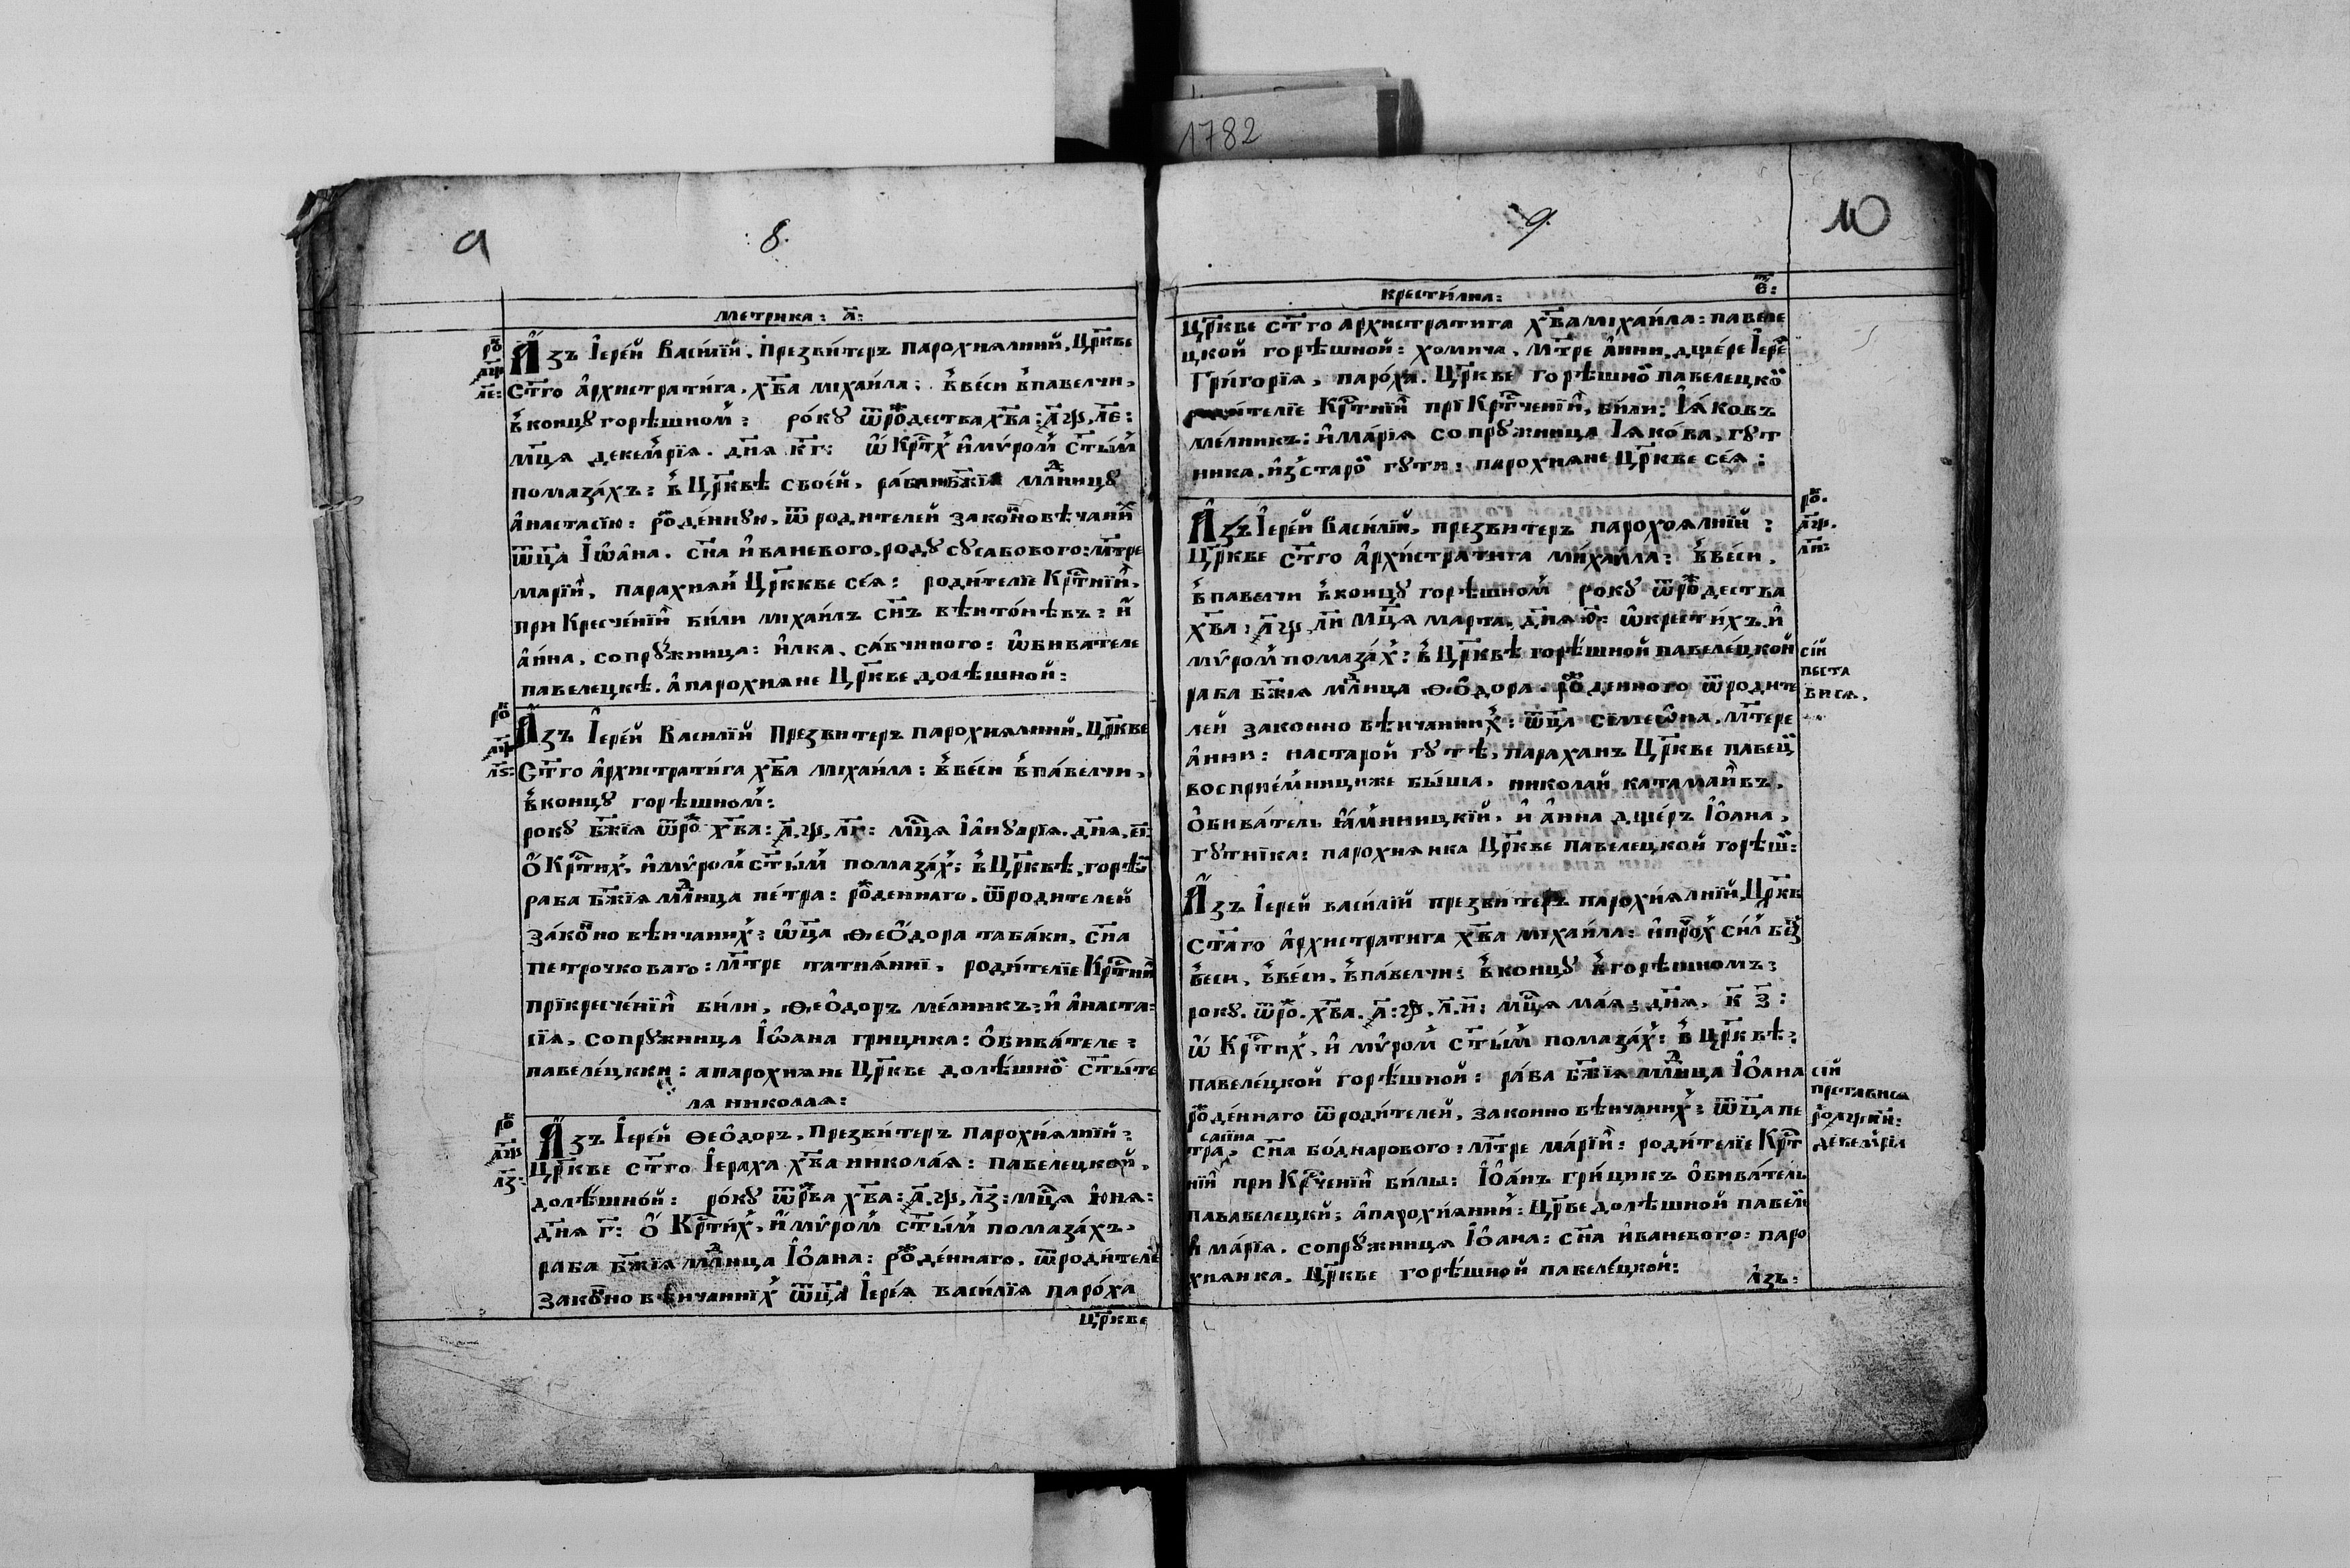 1782
9
8.
Метрика: а҃:
ро҃к
а҃ѱ
л҃е:
А҆зъ І҆ере́й Васи́лїй. Презви́теръ парохиялний, Цр҃кве
Ст҃го а҆рхистрати́га. хв҃а міхаи́ла: в҆ ве́си в҆павелчи,
в҆концꙋ горѣшном: ро́кꙋ ѿро҃ждества хв҃а: а҃ѱ, л҃е:
мц҃я декемрїя. дн҃я к҃г: ѡ҆ Кр҃тх и҆мѵ́ром ст҃ы́м
помаза́хъ: в҆ Цр҃квѣ свое́й, рабꙋ бж҃їя мл҃дницꙋ
а҆настасїю: ро҃жде́ннꙋю, ѿ родителей законовѣчаний
ѿц҃а І҆ѡ҆а́на. сн҃а и҆ваневого, родꙋ сꙋсабового: мт҃ре
марїи, парахияй Цр҃ккве сея́: роди́телїе Кр҃тнїи,
при Кресче́нїи би́ли міхаи́лъ сн҃ъ вѣнто́нѣвъ: и҆
а҆́нна, сопрꙋ́жница: и҆лка, са́вчиного: ѡ҆бивателе
павелецкѣ. а҆парохияне Цр҃кве долѣшной:
ро҃к
а҃ѱ
л҃ѕ:
А҆зъ І҆ере́й Василїй Презвитеръ парохиялний, Цр҃кве
Ст҃го а҆рхистрати́га хв҃а міхаи́ла: в҆ ве́си в҆па́велчи,
в҆концꙋ горѣшном:
рокꙋ бж҃їя ѿро҃ж хв҃а: а҃, ѱ, л҃ѕ: мц҃я І҆а҆нꙋарїя. дн҃я. е҃і:
о҆ Кр҃тих, и҆мѵ́ром ст҃ы́м помаза́х: в҆ Цр҃квѣ, горѣш
раба бж҃їя мл҃дница пе́тра: ро҃жденнаго. ѿродителей
зако́нно вѣнчаних: ѡ҆ц҃а ѳ҆ео҆́дора таба́ки, сн҃а
петрочковаго: мт҃ре татия́нні, роди́телїе Кр҃тнїи
прїкресче́нїи би́ли, Ѳ҆ео҆́доръ ме́лникъ: и҆ а҆наста:
сїя, сопрꙋжница І҆ѡ҆ана грицика: о҆бива́теле:
павеле́цкки: апарохияне Цр҃кве долѣ́шно ст҃ы́те
ла николая:
ро҃к
а҃ѱ
л҃з:
А҆зъ І҆ере́й Ѳео҆́доръ, Презви́теръ Парохия́лнїй:
Цр҃кве ст҃го І҆ераха хв҃а никола́я: павелецкой,
долѣ́шной: ро́кꙋ ѿр҃ва хв҃а: а҃, ѱ, л҃з: мц҃я ю҆ня:
дн҃я г҃: о҆ Кр҃ти́х, и҆мѵ́ром ст҃ы́м помаза́хъ,
раба бж҃їя мл҃дница І҆о҆́ана: ро҃жде́ннаго. ѿроди́теле
законно вѣнчаннїх ѿц҃а І҆ере́я васи́лїя паро́ха
Цр҃кве
9.
10
крести́лна: е҃:
Цр҃кве ст҃го архистратига хв҃а міхаи́ла: павеле
цкой горѣшной: хомича, мт҃ре а҆́нни, дще́ре І҆ере
Григо́рїя, паро́ха. Цр҃кве горѣшно павелецко
роди́телїе Кр҃тнїи прї Кр҃тченїи, били: І҆я́ковъ
ме́лникъ: и҆ма́рїя сопрꙋжница І҆яко́ва, гꙋт
ника, и҆зстаро гꙋти: парохияне Цр҃кве сея́:
ро҃к.
а҃ѱ,
л҃и:
А҆зъ І҆ере́й Васи́лїй, презвитеръ парохоялнїй:
Цр҃кве ст҃го а҆рхи́стратига ми́хаи́ла: в҆ве́си,
в҆павелчи в҆концꙋ горѣшном рокꙋ ѿро҃ждества
хв҃а: а҃ѱ, л҃и мц҃я марта, дн҃я ѳ҃: ѡ҆крести́хъ, и҆
мѵ́ром помаза́х: в҆ Цр҃квѣ горѣ́шной павеле́цкой
раба бж҃їя мл҃дница ѳ҆ео҆́дора. ро҃жденного ѿродите
лей законно вѣнчанних: ѿц҃а сїмеѡ҆́на. мт҃тере
а҆́нни: настарой гꙋтѣ, парахянъ Цр҃кве павец
восприе́мницнже бы́ша, николай катаманівъ,
о҆бива́тель ꙗ҆́минницкїй, и҆ а҆́нна дще́ръ І҆о҆ана,
гꙋтнїка: парохиянка Цр҃кве павелецкой горѣш:
сі́й
прста
вися.
А҆зъ І҆ере́й васи́лїй презвитеръ парохия́лнїй, Цр҃кв
Ст҃аго а҆рхистратига хв҃а міхаи́ла:
ве́си, в҆ве́си, в҆па́велчи: в҆концꙋ в҆горѣшномъ:
рокꙋ. ѿро҃ж. хв҃а. а҃: ѱ, л҃.и: мц҃я ма́я: дн҃я, к҃ з҃:
ѡ҆ Кр҃тих, и҆ мѵ́ром ст҃ы́м помаза́х: в҆ Цр҃квѣ:
павеле́цкой горѣ́шной: ра́ба бж҃їя мл҃дница І҆о҆́ана
ро҃жде́ннаго ѿроди́телей, законно вѣнчаних: ѿц҃а пе
тра, сн҃а бо́днарового: мт҃ре ма́рїи: роди́телїе Кр҃т
нїи при Кр҃ченїи би́лы: І҆о҆́анъ гри́цикъ о҆бива́тель
пававелецки; а҆парохия́ний: Цр҃ве долѣшной павел
и҆ ма́рїя. сопрꙋ́жниця І҆о҆́ана: сн҃а и҆ваневого: паро
хиянка, Цр҃кве горѣ́шной павеле́цкой:
а҆зъ:
сі́й
преставися
ро҃к а҃ѱл҃и:
декемрїя